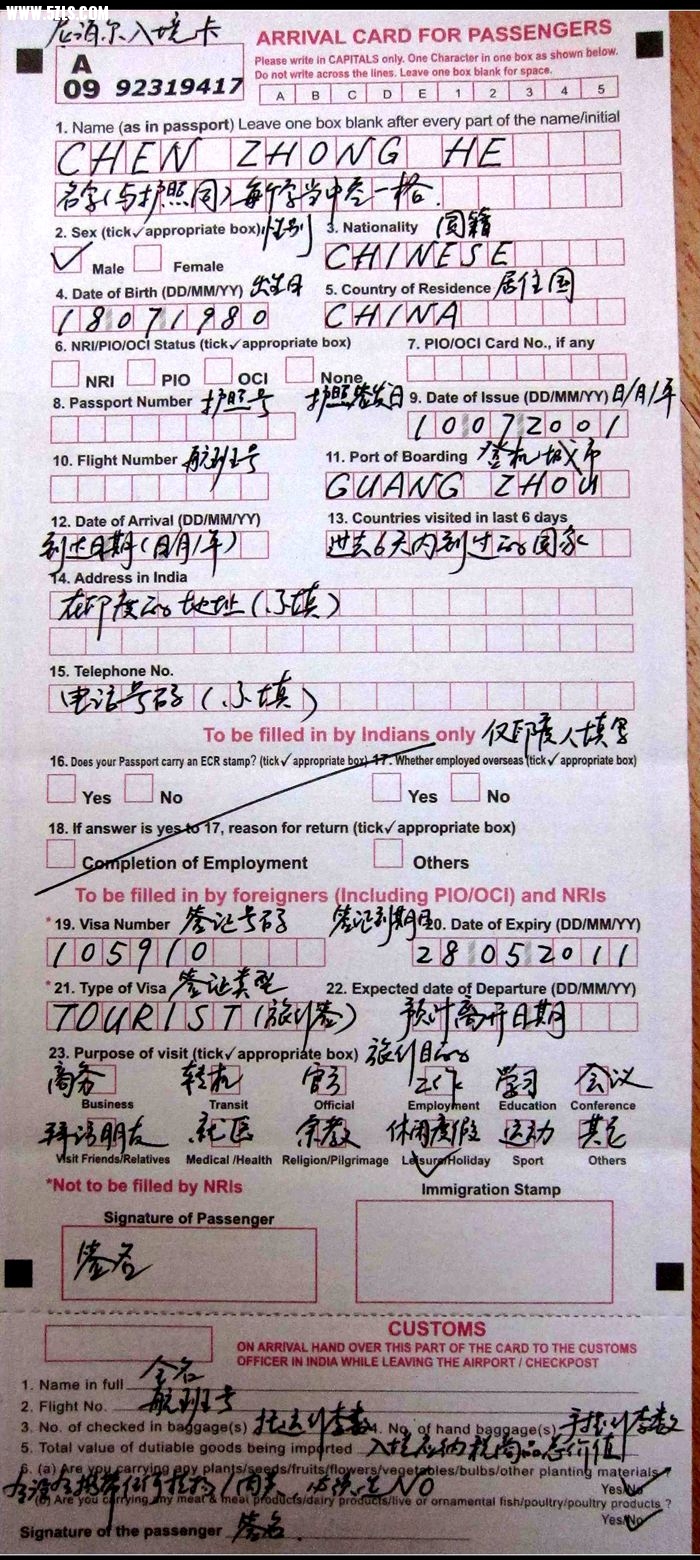 WWW.5ZLS.COM
尼泊尔入境卡
ARRIVAL CARD FOR PASSENGERS
A
09 92319417
Please write in CAPITALS only. One Character in one box as shown below.
Do not write across the lines. Leave one box blank for space.
A B C D E 1 2 3 4 5
1. Name (as in passport) Leave one box blank after every part of the name/initial
CHEN ZHONG HE
名字(与护照同)每个字当中空一格.
2. Sex (tick✓appropriate box) 性别 3. Nationality 国籍
✓ Male Female CHINESE
4. Date of Birth (DD/MM/YY) 出生日 5. Country of Residence 居住国
18071980 CHINA
6. NRI/PIO/OCI Status (tick✓appropriate box) 7. PIO/OCI Card No., if any
NRI PIO OCI None
8. Passport Number 护照号 护照签发日 9. Date of Issue (DD/MM/YY) 日/月/年
10072001
10. Flight Number 航班号 11. Port of Boarding 登机城市
GUANG ZHOU
12. Date of Arrival (DD/MM/YY) 13. Countries visited in last 6 days
到达日期(日/月/年) 过去6天内到过的国家
14. Address in India
在印度的地址(不填)
15. Telephone No.
电话号码(不填)
To be filled in by Indians only 仅印度人填写
16. Does your Passport carry an ECR stamp? (tick✓appropriate box) 17. Whether employed overseas (tick✓appropriate box)
Yes No Yes No
18. If answer is yes to 17, reason for return (tick✓appropriate box)
Completion of Employment Others
To be filled in by foreigners (Including PIO/OCI) and NRIs
*19. Visa Number 签证号码 签证到期日 20. Date of Expiry (DD/MM/YY)
105910 28052011
*21. Type of Visa 签证类型 22. Expected date of Departure (DD/MM/YY)
TOURIST(旅行签) 预计离开日期
23. Purpose of visit (tick✓appropriate box) 旅行目的
商务 转机 官方 工作 学习 会议
Business Transit Official Employment Education Conference
拜访朋友 就医 宗教 休闲度假 运动 其它
Visit Friends/Relatives Medical /Health Religion/Pilgrimage Leisure/Holiday Sport Others
✓
*Not to be filled by NRIs Immigration Stamp
Signature of Passenger
签名
CUSTOMS
ON ARRIVAL HAND OVER THIS PART OF THE CARD TO THE CUSTOMS
OFFICER IN INDIA WHILE LEAVING THE AIRPORT / CHECKPOST
1. Name in full 全名
2. Flight No. 航班号
3. No. of checked in baggage(s) 托运行李数 4. No. of hand baggage(s) 手提行李数
5. Total value of dutiable goods being imported 入境应纳税商品总价值
6. (a) Are you carrying any plants/seeds/fruits/flowers/vegetables/bulbs/other planting materials ?
Yes/No ✓
NO
(b) Are you carrying any meat & meat products/dairy products/live or ornamental fish/poultry/poultry products ?
Yes/No ✓
Signature of the passenger 签名